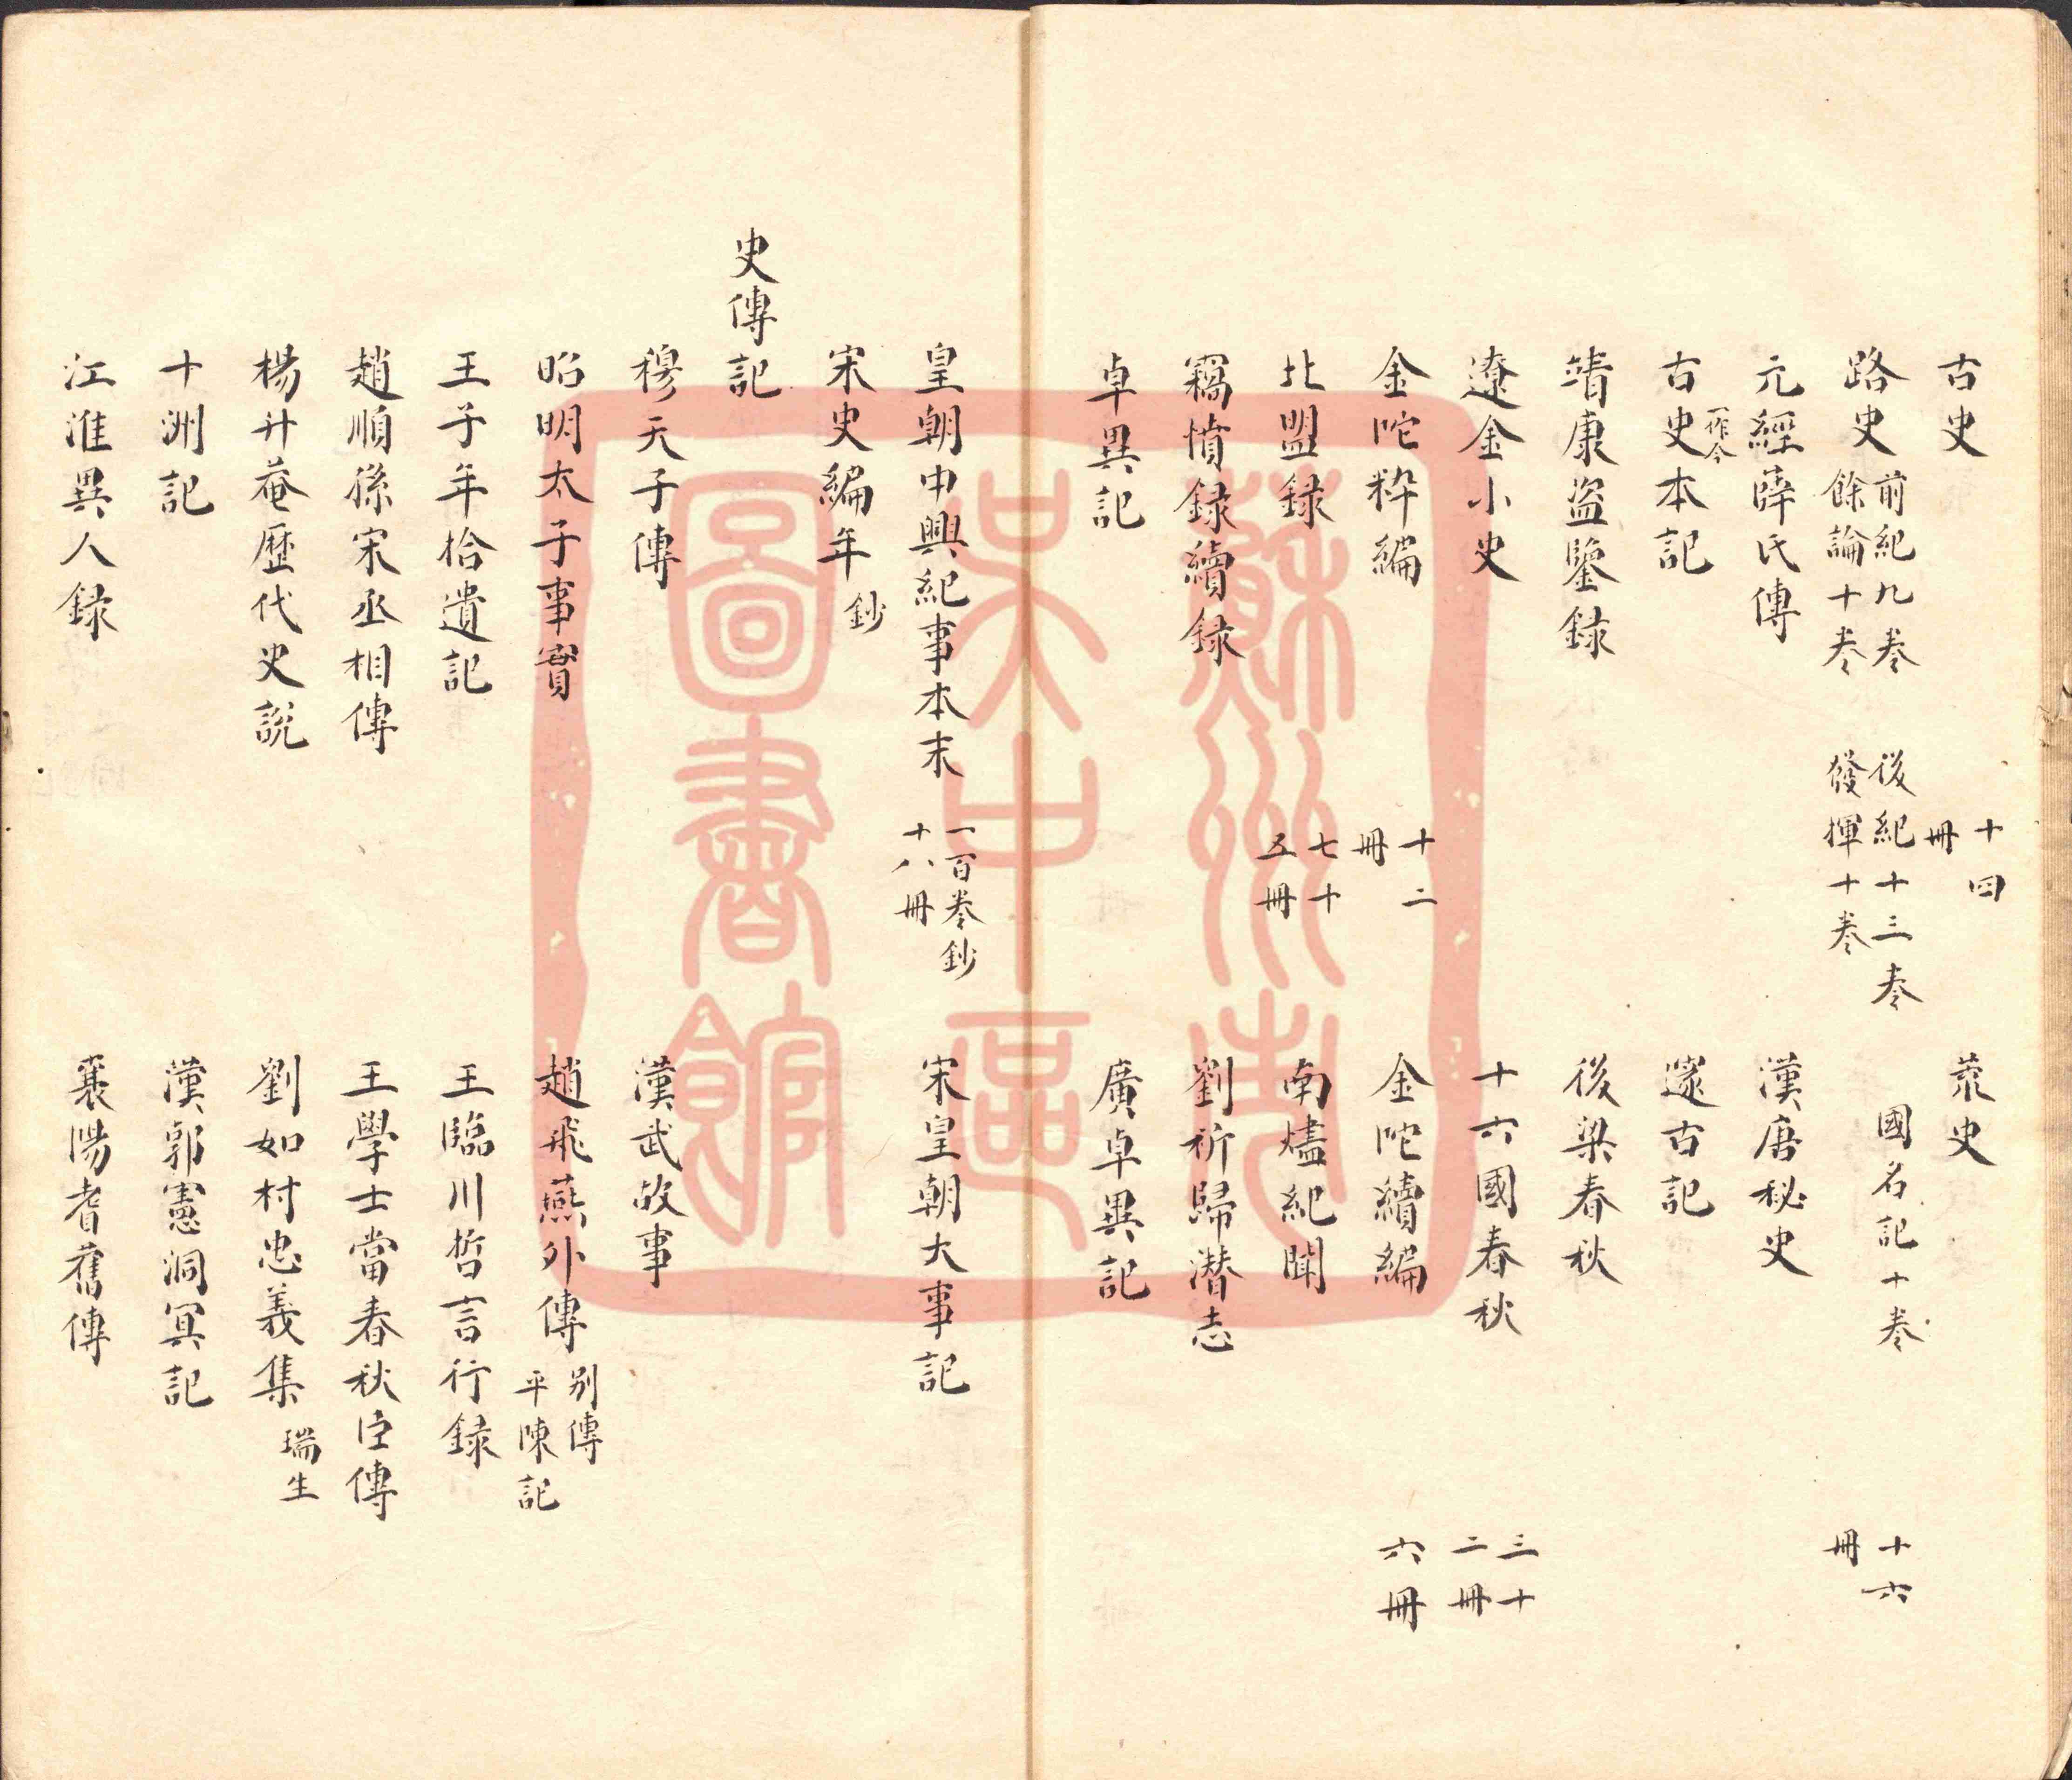 古史 十四冊 荒史
路史 前紀九卷 餘論十卷 後紀十三卷 發揮十卷 國名記十卷 十六冊
元經薛氏傳 漢唐秘史
古史本記 一作今 邃古記
靖康盜鑒錄 後梁春秋
遼金小史 十六國春秋 三十二冊
金陀粹編 十二冊 金陀續編 六冊
北盟錄 七十五冊 南燼紀聞
竊憤錄續錄 劉祈歸潛志
卓異記 廣卓異記
皇朝中興紀事本末 一百卷鈔十八冊 宋皇朝大事記
宋史編年 鈔
史傳記
穆天子傳 漢武故事
昭明太子事實 趙飛燕外傳 別傳 平陳記
王子年拾遺記 王臨川哲言行錄
趙順孫宋丞相傳 王學士當春秋臣傳
楊升菴歷代史說 劉如村忠義集 瑞生
十洲記 漢郭憲洞冥記
江淮異人錄 襄陽耆舊傳
蘇州市
吳中區
圖書館